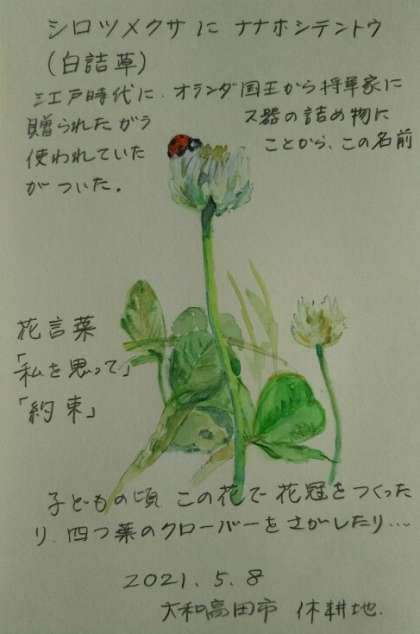 シロツメクサに ナナホシテントウ
(白詰草)
江戸時代に、オランダ国王から将軍家に
贈られたガラス器の詰め物に
使われていたことから、この名前
がついた。
花言葉
「私を思って」
「約束」
子どもの頃 この花で 花冠をつくった
り、四つ葉のクローバーをさがしたり…
2021.5.8
大和高田市 休耕地.